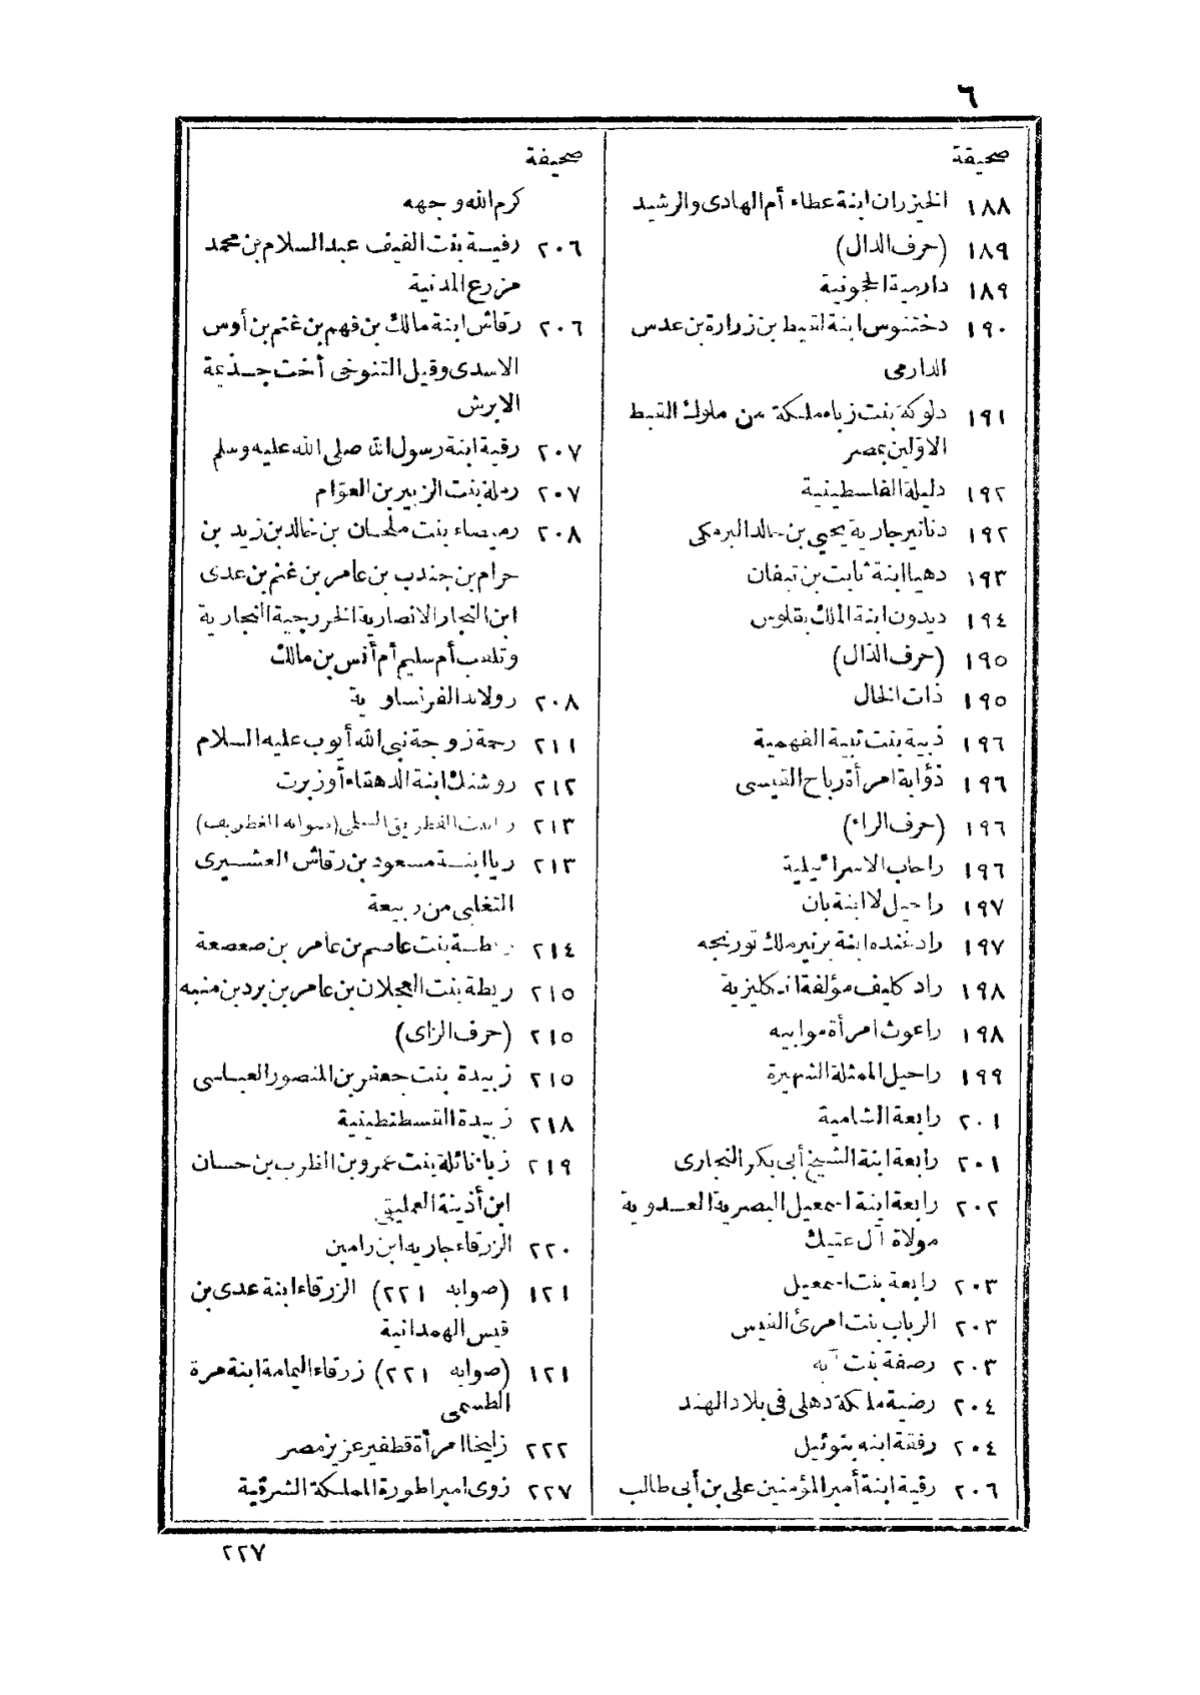 ٦
صحيفة
١٨٨ الخيزران ابنة عطاء أم الهادى والرشيد
١٨٩ (حرف الدال)
١٨٩ دارمية الحجونية
١٩٠ دختنوس ابنة لقيط بن زرارة بن عدس
الدارمى
١٩١ دلوكة بنت زباء ملكة من ملوك القبط
الاوّلين بمصر
١٩٢ دليلة الفلسطينية
١٩٢ دنانير جارية يحيى بن خالد البرمكى
١٩٣ دهيا ابنة ثابت بن تيفان
١٩٤ ديدون ابنة الملك بقلوس
١٩٥ (حرف الذال)
١٩٥ ذات الخال
١٩٦ ذبية بنت نبية الفهمية
١٩٦ ذؤابة امرأة رباح القيسى
١٩٦ (حرف الراء)
١٩٦ راحاب الاسرائيلية
١٩٧ راحيل لا ابنة بان
١٩٧ رادغنده ابنة برتير ملك تورنجه
١٩٨ رادكليف مؤلفة انكليزية
١٩٨ راعوث امرأة موابيه
١٩٩ راحيل الممثلة الشهيرة
٢٠١ رابعة الشامية
٢٠١ رابعة ابنة الشيخ أبى بكر النجارى
٢٠٢ رابعة ابنة اسمعيل البصرية العدوية
مولاة آل عتيك
٢٠٣ رابعة بنت اسمعيل
٢٠٣ الرباب بنت امرئ القيس
٢٠٣ رصفة بنت آيه
٢٠٤ رضية ملكة دهلى فى بلاد الهند
٢٠٤ رفقة ابنه بتوئيل
٢٠٦ رقية ابنة أمير المؤمنين على بن أبى طالب
صحيفة
كرم الله وجهه
٢٠٦ رفيسة بنت الفيف عبد السلام بن محمد
مزرع المدنية
٢٠٦ رقاش ابنة مالك بن فهم بن غنم بن أوس
الاسدى وقيل التنوخى أخت جذيمة
الابرش
٢٠٧ رقية ابنة رسول الله صلى الله عليه وسلم
٢٠٧ رملة بنت الزبير بن العوّام
٢٠٨ رميصاء بنت ملحان بن خالد بن زيد بن
حرام بن جندب بن عامر بن غنم بن عدى
ابن النجار الانصارية الخزرجية النجارية
وتلقب أم سليم أم أنس بن مالك
٢٠٨ رولاند الفرنساوية
٢١١ رحمة زوجة نبى الله أيوب عليه السلام
٢١٢ روشنك ابنة الدهقاء أوزبرت
٢١٣ رابعت الغطريق السلمى (صوابه الغطريف)
٢١٣ ريا ابنة مسعود بن رقاش العشيرى
التغلبى من ربيعة
٢١٤ ريطة بنت عاصم بن عامر بن صعصعة
٢١٥ ريطة بنت العجلان بن عامر بن برد بن منبه
٢١٥ (حرف الزاى)
٢١٥ زبيدة بنت جعفر بن المنصور العباسى
٢١٨ زبيدة القسطنطينية
٢١٩ زبا نائلة بنت عمرو بن الظرب بن حسان
ابن أذينة العمليق
٢٢٠ الزرقاء جاريه ابن رامين
١٢١ (صوابه ٢٢١) الزرقاء ابنة عدى بن
قيس الهمدانية
١٢١ (صوابه ٢٢١) زرقاء اليمامة ابنة مرة
الطسمى
٢٢٢ زليخا امرأة قطفير عزيز مصر
٢٢٧ زوى امبراطورة المملكة الشرقية
٢٢٧